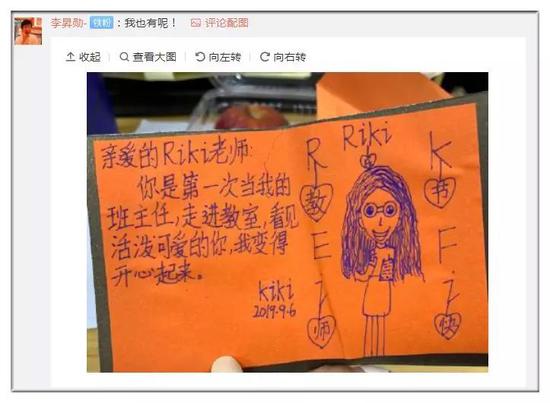 李昇勋- 铁粉 ：我也有呢！ 评论配图
收起 查看大图 向左转 向右转
亲爱的Riki老师:
你是第一次当我的
班主任,走进教室,看见
活泼可爱的你,我变得
开心起来。
kiki
2019.9.6
Riki
R
教
E
i
师
K
节
F
i
快